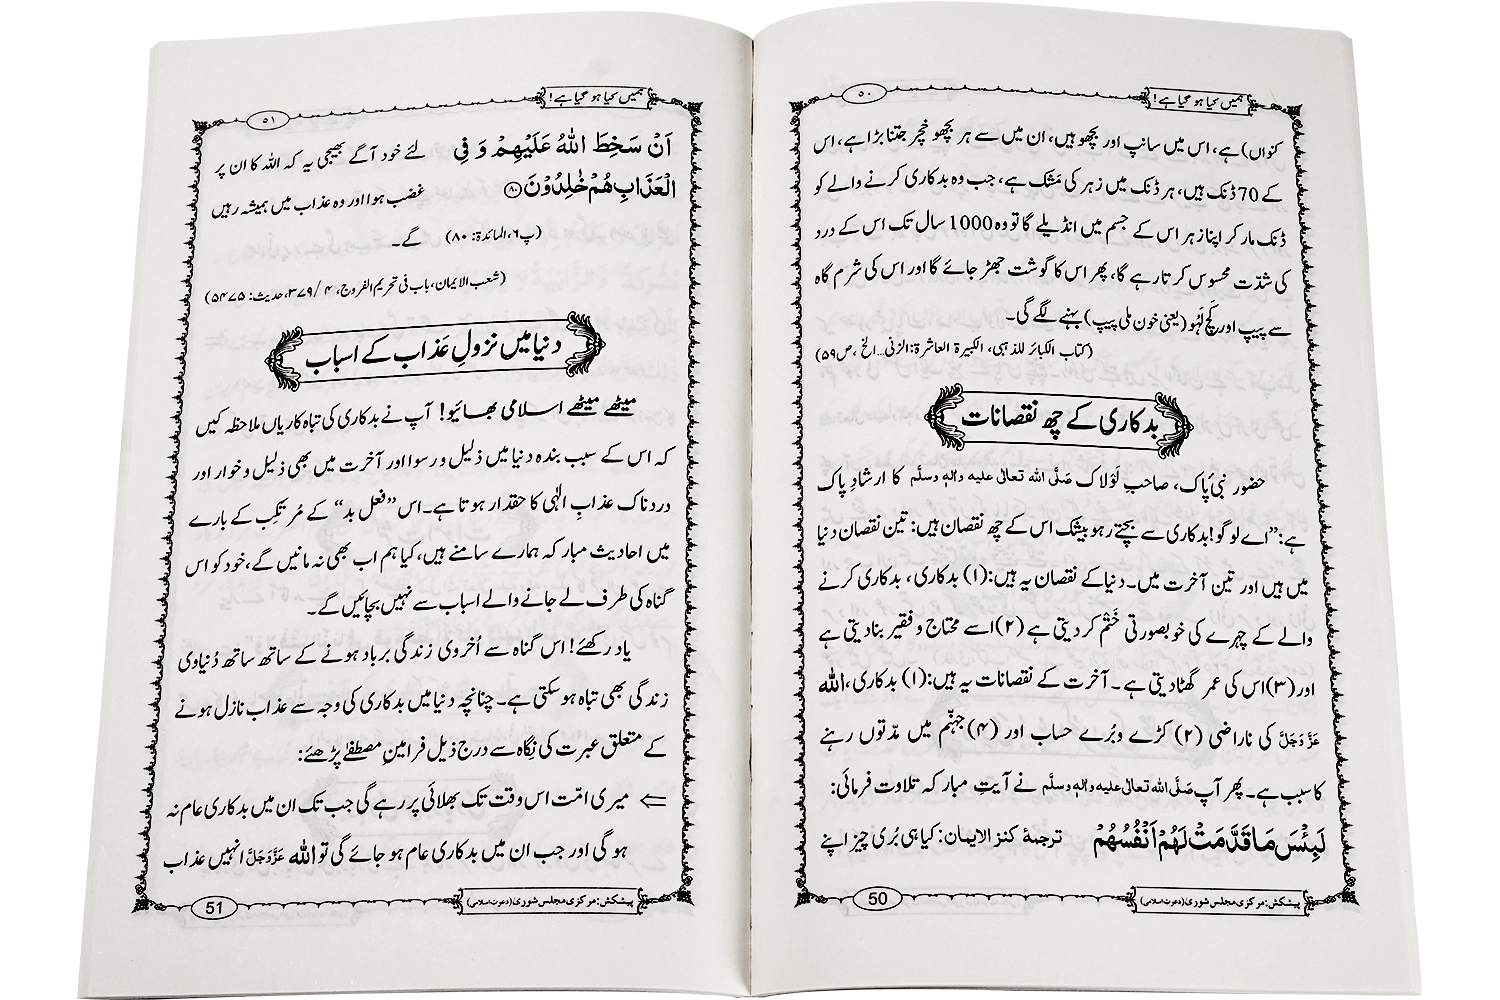 ہمیں کیا ہو گیا ہے!
۵۰
کنواں) ہے، اس میں سانپ اور بچھو ہیں، ان میں سے ہر بچھو خچر جتنا بڑا ہے، اس
کے 70 ڈنک ہیں، ہر ڈنک میں زہر کی مَشک ہے، جب وہ بدکاری کرنے والے کو
ڈنک مار کر اپنا زہر اس کے جسم میں انڈیلے گا تو وہ 1000 سال تک اس کے درد
کی شدّت محسوس کرتا رہے گا، پھر اس کا گوشت جھڑ جائے گا اور اس کی شرم گاہ
سے پیپ اور کَچ لَہُو (یعنی خون ملی پیپ) بہنے لگے گی۔
(کتاب الکبائر للذہبی، الکبیرۃ العاشرۃ: الزنی۔۔الخ ،ص۵۹)
بدکاری کے چھ نقصانات
حضور نبیِّ پاک، صاحبِ لَولاک صَلَّی اللہ تعالٰی علیہ واٰلہٖ وسلَّم کا ارشادِ پاک
ہے: ”اے لوگو! بدکاری سے بچتے رہو بیشک اس کے چھ نقصان ہیں: تین نقصان دنیا
میں ہیں اور تین آخرت میں۔ دنیا کے نقصان یہ ہیں: (۱) بدکاری، بدکاری کرنے
والے کے چہرے کی خوبصورتی خَتْم کر دیتی ہے (۲) اسے محتاج و فقیر بنا دیتی ہے
اور (۳) اس کی عمر گھٹا دیتی ہے۔ آخرت کے نقصانات یہ ہیں: (۱) بدکاری، اللہ
عَزَّوَجَلَّ کی ناراضی (۲) کڑے و بُرے حساب اور (۴) جہنّم میں مدّتوں رہنے
کا سبب ہے۔ پھر آپ صَلَّی اللہ تعالٰی علیہ واٰلہٖ وسلَّم نے آیتِ مبارکہ تلاوت فرمائی:
لَبِئْسَ مَا قَدَّمَتْ لَهُمْ اَنْفُسُهُمْ ترجمۂ کنز الایمان: کیا ہی بُری چیز اپنے
پیشکش: مرکزی مجلس شوریٰ (دعوتِ اسلامی)
50
ہمیں کیا ہو گیا ہے!
۵۱
اَنْ سَخِطَ اللّٰهُ عَلَیْهِمْ وَ فِی لئے خود آگے بھیجی یہ کہ اللہ کا ان پر
الْعَذَابِ هُمْ خٰلِدُوْنَ ۸۰ غضب ہوا اور وہ عذاب میں ہمیشہ رہیں
(پ۶، المائدۃ: ۸۰) گے۔
(شعب الایمان، باب فی تحریم الفروج، ۴ /۳۷۹، حدیث: ۵۴۷۵)
دنیا میں نزولِ عَذاب کے اسباب
میٹھے میٹھے اسلامی بھائیو! آپ نے بدکاری کی تباہ کاریاں ملاحظہ کیں
کہ اس کے سبب بندہ دنیا میں ذلیل و رسوا اور آخرت میں بھی ذلیل و خوار اور
دردناک عذابِ الٰہی کا حقدار ہوتا ہے۔ اس ”فعل بد“ کے مُرتکِب کے بارے
میں احادیث مبارکہ ہمارے سامنے ہیں، کیا ہم اب بھی نہ مانیں گے، خود کو اس
گناہ کی طرف لے جانے والے اسباب سے نہیں بچائیں گے۔
یاد رکھئے! اس گناہ سے اُخروی زندگی برباد ہونے کے ساتھ ساتھ دُنیاوی
زندگی بھی تباہ ہو سکتی ہے۔ چنانچہ دنیا میں بدکاری کی وجہ سے عذاب نازل ہونے
کے متعلق عبرت کی نگاہ سے درج ذیل فرامینِ مصطفٰے پڑھئے:
⇐ میری امّت اس وقت تک بھلائی پر رہے گی جب تک ان میں بدکاری عام نہ
ہو گی اور جب ان میں بدکاری عام ہو جائے گی تو اللہ عَزَّوَجَلَّ انہیں عذاب
پیشکش: مرکزی مجلس شوریٰ (دعوتِ اسلامی)
51